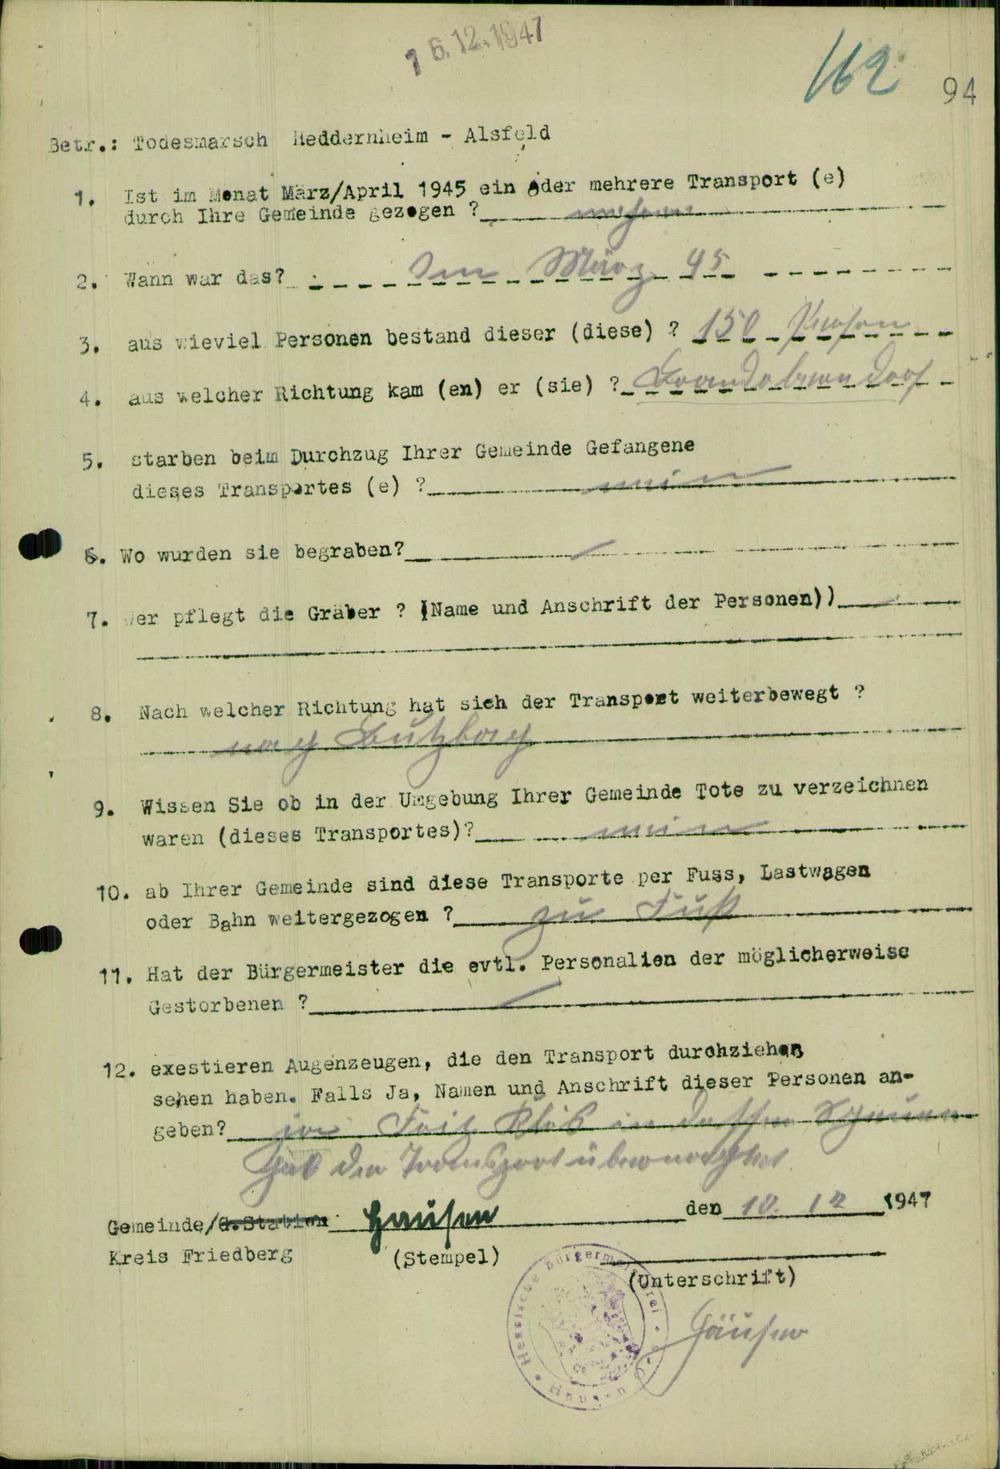 16.12.1947
162
94
Betr.: Todesmarsch Heddernheim - Alsfeld
1. Ist im Monat März/April 1945 ein oder mehrere Transport (e)
durch Ihre Gemeinde gezogen ?
2. Wann war das? Im März 45
3. aus wieviel Personen bestand dieser (diese) ? 150 Person
4. aus welcher Richtung kam (en) er (sie) ?
5. starben beim Durchzug Ihrer Gemeinde Gefangene
dieses Transportes (e) ? nein
6. Wo wurden sie begraben? /
7. Wer pflegt die Gräber ? (Name und Anschrift der Personen))
8. Nach welcher Richtung hat sich der Transport weiterbewegt ?
nach Butzbach
9. Wissen Sie ob in der Umgebung Ihrer Gemeinde Tote zu verzeichnen
waren (dieses Transportes)? nein
10. ab Ihrer Gemeinde sind diese Transporte per Fuss, Lastwagen
oder Bahn weitergezogen ? zu Fuß
11. Hat der Bürgermeister die evtl. Personalien der möglicherweise
Gestorbenen ? /
12. exestieren Augenzeugen, die den Transport durchziehen
sehen haben. Falls Ja, Namen und Anschrift dieser Personen an-
geben? ja in dessen
hat der Transport übernachtet
Gemeinde/G.Station Hausen den 10. 12 1947
Kreis Friedberg (Stempel)
(Unterschrift)
Hessische Bürgermeisterei
Hausen
Häuser